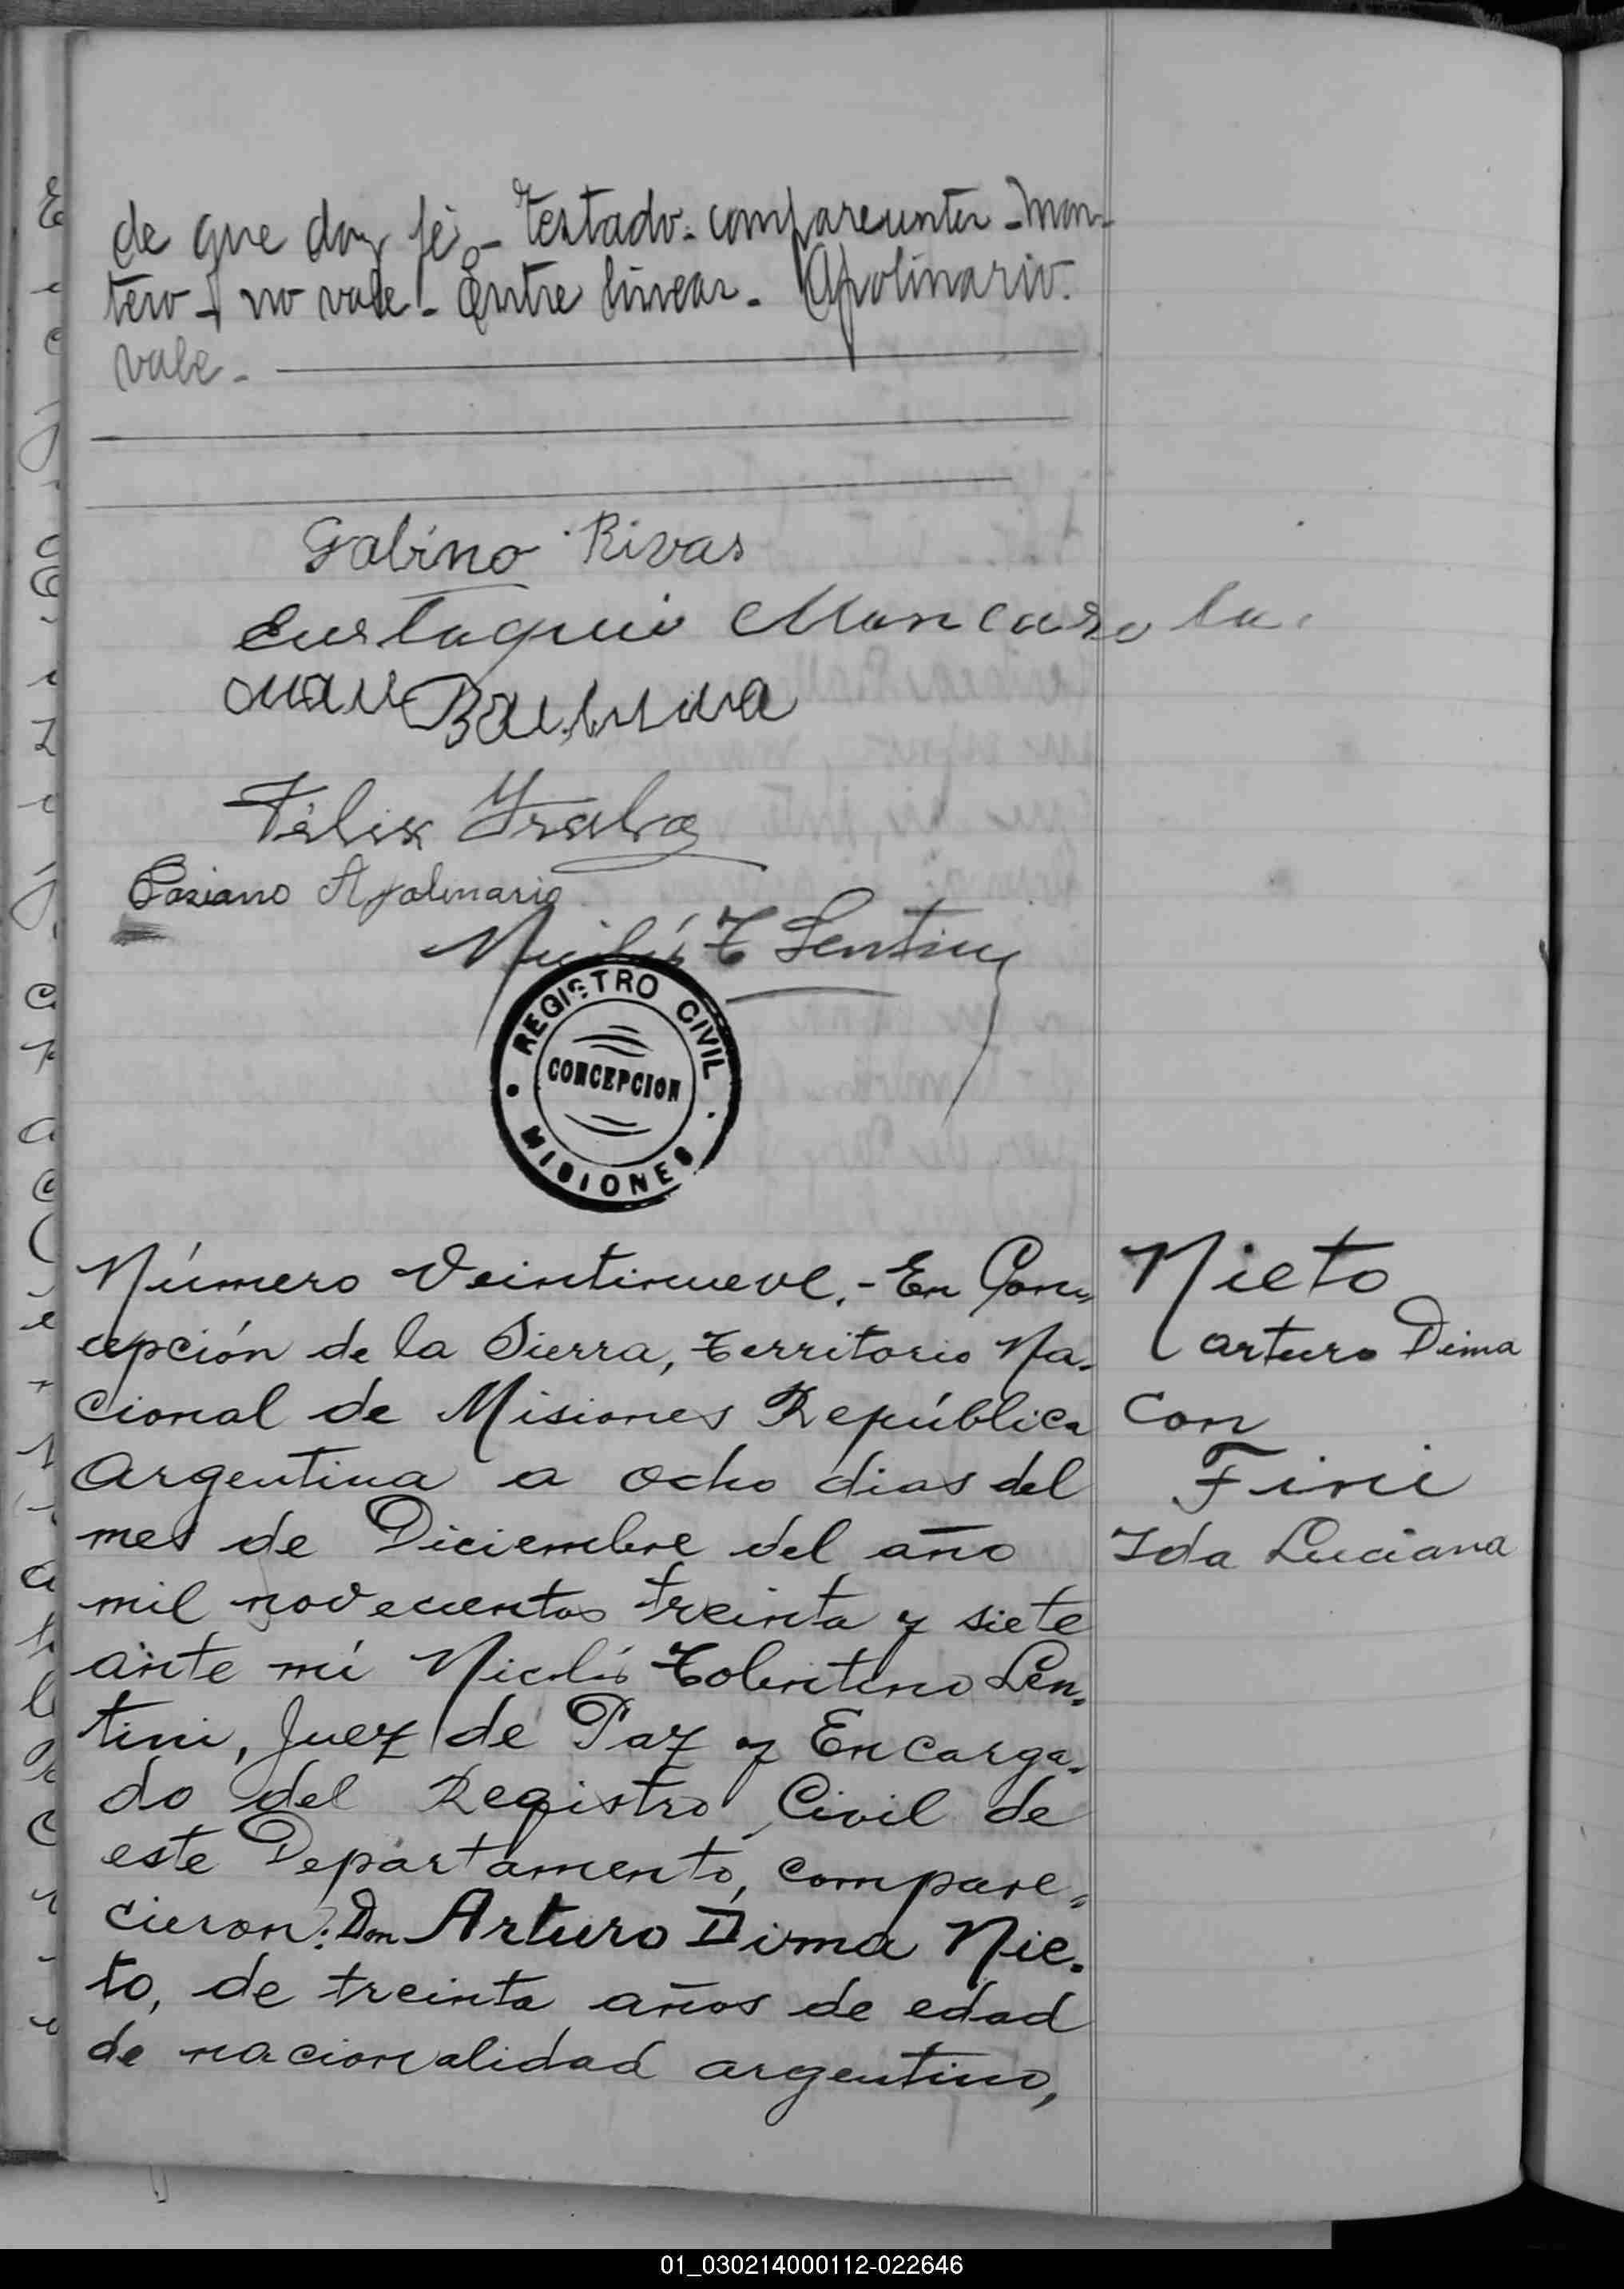 de que doy fé.- Testado- compareciente - Mon-
tero - no vale - Entre lineas - Apolinario.
vale -
Gabino Rivas
Eustaquio
Félix
Casiano Apolinario
Nicolás T Lentini
REGISTRO CIVIL
CONCEPCION
MISIONES
Número Veintinueve.- En Con-
cepción de la Sierra, territorio Na-
cional de Misiones República
Argentina a ocho dias del
mes de Diciembre del año
mil novecientos treinta y siete
ante mi Nicolás Tolentino Len-
tini, Juez de Paz y Encarga-
do del Registro Civil de
este Departamento, compare-
cieron: Don Arturo Dima Nie-
to, de treinta años de edad
de nacionalidad argentino,
Nieto
Arturo Dima
con
Fini
Ida Luciana
01_030214000112-022646